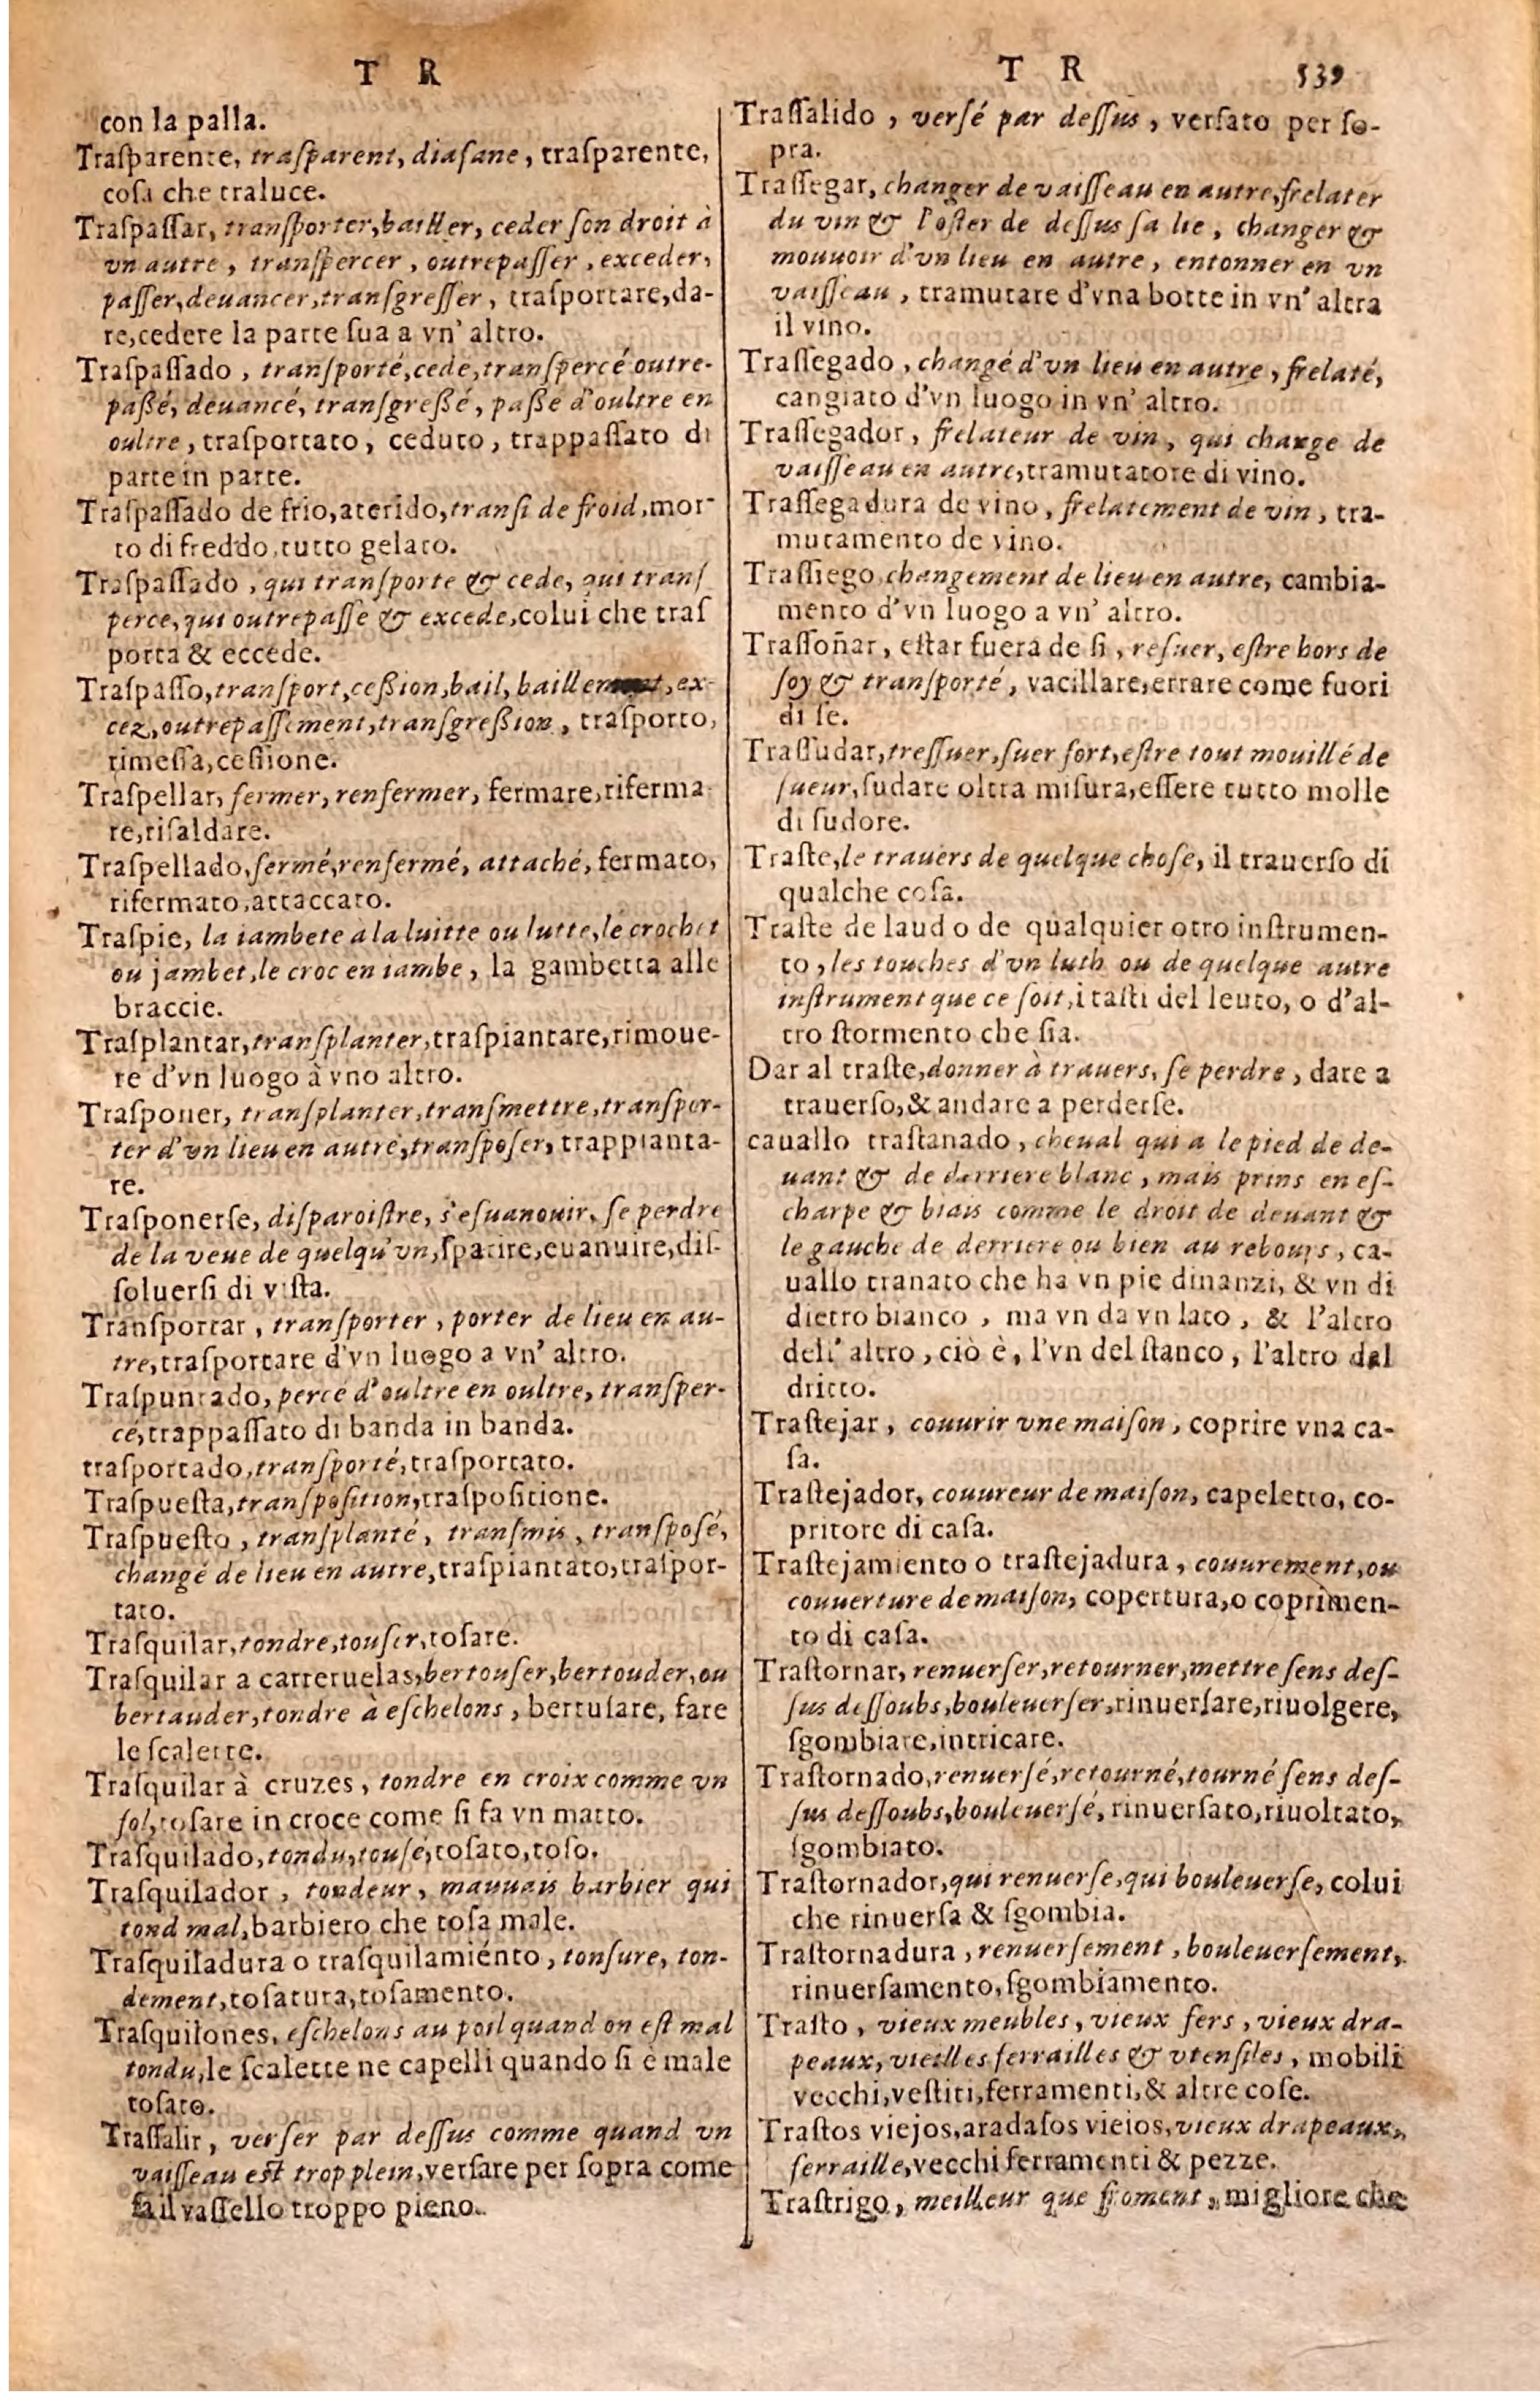 T R
con la palla.
Traſparente, traſparent, diafane, traſparente,
coſa che traluce.
Traſpaſſar, tranſporter, bailler, ceder ſon droit à
vn autre, tranſpercer, outrepaſſer, exceder,
paſſer, deuancer, tranſgreſſer, traſportare, da-
re, cedere la parte ſua a vn' altro.
Traſpaſſado, tranſporté, cede, tranſpercé outre-
paßé, deuancé, tranſgreßé, paßé d'oultre en
oultre, traſportato, ceduto, trappaſſato di
parte in parte.
Traſpaſſado de frio, aterido, tranſi de froid, mor-
to di freddo, tutto gelato.
Traſpaſſado, qui tranſporte & cede, qui tranſ
perce, qui outrepaſſe & excede, colui che traſ
porta & eccede.
Traſpaſſo, tranſport, ceßion, bail, baillement, ex-
cez, outrepaſſement, tranſgreßion, traſporto,
rimeſſa, ceſſione.
Traſpellar, fermer, renfermer, fermare, riferma
re, riſaldare.
Traſpellado, fermé, renfermé, attaché, fermato,
rifermato, attaccato.
Traſpie, la iambete à la luitte ou lutte, le crochet
ou jambet, le croc en iambe, la gambetta alle
braccie.
Traſplantar, tranſplanter, traſpiantare, rimoue-
re d'vn luogo à vno altro.
Traſponer, tranſplanter, tranſmettre, tranſpor-
ter d'vn lieu en autre, tranſpoſer, trappianta-
re.
Traſponerſe, diſparoiſtre, s'eſuanouir, ſe perdre
de la veue de quelqu'vn, ſparire, euanuire, diſ-
ſoluerſi di viſta.
Tranſportar, tranſporter, porter de lieu en au-
tre, traſportare d'vn luogo a vn' altro.
Traſpuntado, percé d'oultre en oultre, tranſper-
cé, trappaſſato di banda in banda.
traſportado, tranſporté, traſportato.
Traſpueſta, tranſpoſition, traſpoſitione.
Traſpueſto, tranſplanté, tranſmis, tranſpoſé,
changé de lieu en autre, traſpiantato, traſpor-
tato.
Traſquilar, tondre, touſer, toſare.
Traſquilar a carreruelas, bertouſer, bertouder, ou
bertauder, tondre à eſchelons, bertuſare, fare
le ſcalette.
Traſquilar à cruzes, tondre en croix comme vn
fol, toſare in croce come ſi fa vn matto.
Traſquilado, tondu, touſé, toſato, toſo.
Traſquilador, tondeur, mauuais barbier qui
tond mal, barbiero che toſa male.
Traſquiladura o traſquilamiénto, tonſure, ton-
dement, toſatura, toſamento.
Traſquilones, eſchelons au poil quand on eſt mal
tondu, le ſcalette ne capelli quando ſi è male
toſato.
Traſſalir, verſer par deſſus comme quand vn
vaiſſeau eſt trop plein, verſare per ſopra come
fa il vaſſello troppo pieno.
T R 539
Traſſalido, verſé par deſſus, verſato per ſo-
pra.
Traſſegar, changer de vaiſſeau en autre, frelater
du vin & l'oſter de deſſus ſa lie, changer &
mouuoir d'vn lieu en autre, entonner en vn
vaiſſeau, tramutare d'vna botte in vn' altra
il vino.
Traſſegado, changé d'vn lieu en autre, frelaté,
cangiato d'vn luogo in vn' altro.
Traſſegador, frelateur de vin, qui change de
vaiſſeau en autre, tramutatore di vino.
Traſſegadura de vino, frelatement de vin, tra-
mutamento de vino.
Traſſiego, changement de lieu en autre, cambia-
mento d'vn luogo a vn' altro.
Traſſoñar, eſtar fuera de ſi, reſuer, eſtre hors de
ſoy & tranſporté, vacillare, errare come fuori
di ſe.
Traſſudar, treſſuer, ſuer fort, eſtre tout mouillé de
ſueur, ſudare oltra miſura, eſſere tutto molle
di ſudore.
Traſte, le trauers de quelque choſe, il trauerſo di
qualche coſa.
Traſte de laud o de qualquier otro inſtrumen-
to, les touches d'vn luth ou de quelque autre
inſtrument que ce ſoit, i taſti del leuto, o d'al-
tro ſtormento che ſia.
Dar al traſte, donner à trauers, ſe perdre, dare a
trauerſo, & andare a perderſe.
cauallo traſtanado, cheual qui a le pied de de-
uant & de derriere blanc, mais prins en eſ-
charpe & biais comme le droit de deuant &
le gauche de derriere ou bien au rebours, ca-
uallo tranato che ha vn pie dinanzi, & vn di
dietro bianco, ma vn da vn lato, & l'altro
dell' altro, ciò è, l'vn del ſtanco, l'altro dal
dritto.
Traſtejar, couurir vne maiſon, coprire vna ca-
ſa.
Traſtejador, couureur de maiſon, capeletto, co-
pritore di caſa.
Traſtejamiento o traſtejadura, couurement, ou
couuerture de maiſon, copertura, o coprimen-
to di caſa.
Traſtornar, renuerſer, retourner, mettre ſens deſ-
ſus deſſoubs, bouleuerſer, rinuerſare, riuolgere,
ſgombiare, intricare.
Traſtornado, renuerſé, retourné, tourné ſens deſ-
ſus deſſoubs, bouleuerſé, rinuerſato, riuoltato,
ſgombiato.
Traſtornador, qui renuerſe, qui bouleuerſe, colui
che rinuerſa & ſgombia.
Traſtornadura, renuerſement, bouleuerſement,
rinuerſamento, ſgombiamento.
Traſto, vieux meubles, vieux fers, vieux dra-
peaux, vieilles ferrailles & vtenſiles, mobili
vecchi, veſtiti, ferramenti, & altre coſe.
Traſtos viejos, aradaſos vieios, vieux drapeaux,
ferraille, vecchi ferramenti & pezze.
Traſtrigo, meilleur que froment, migliore che